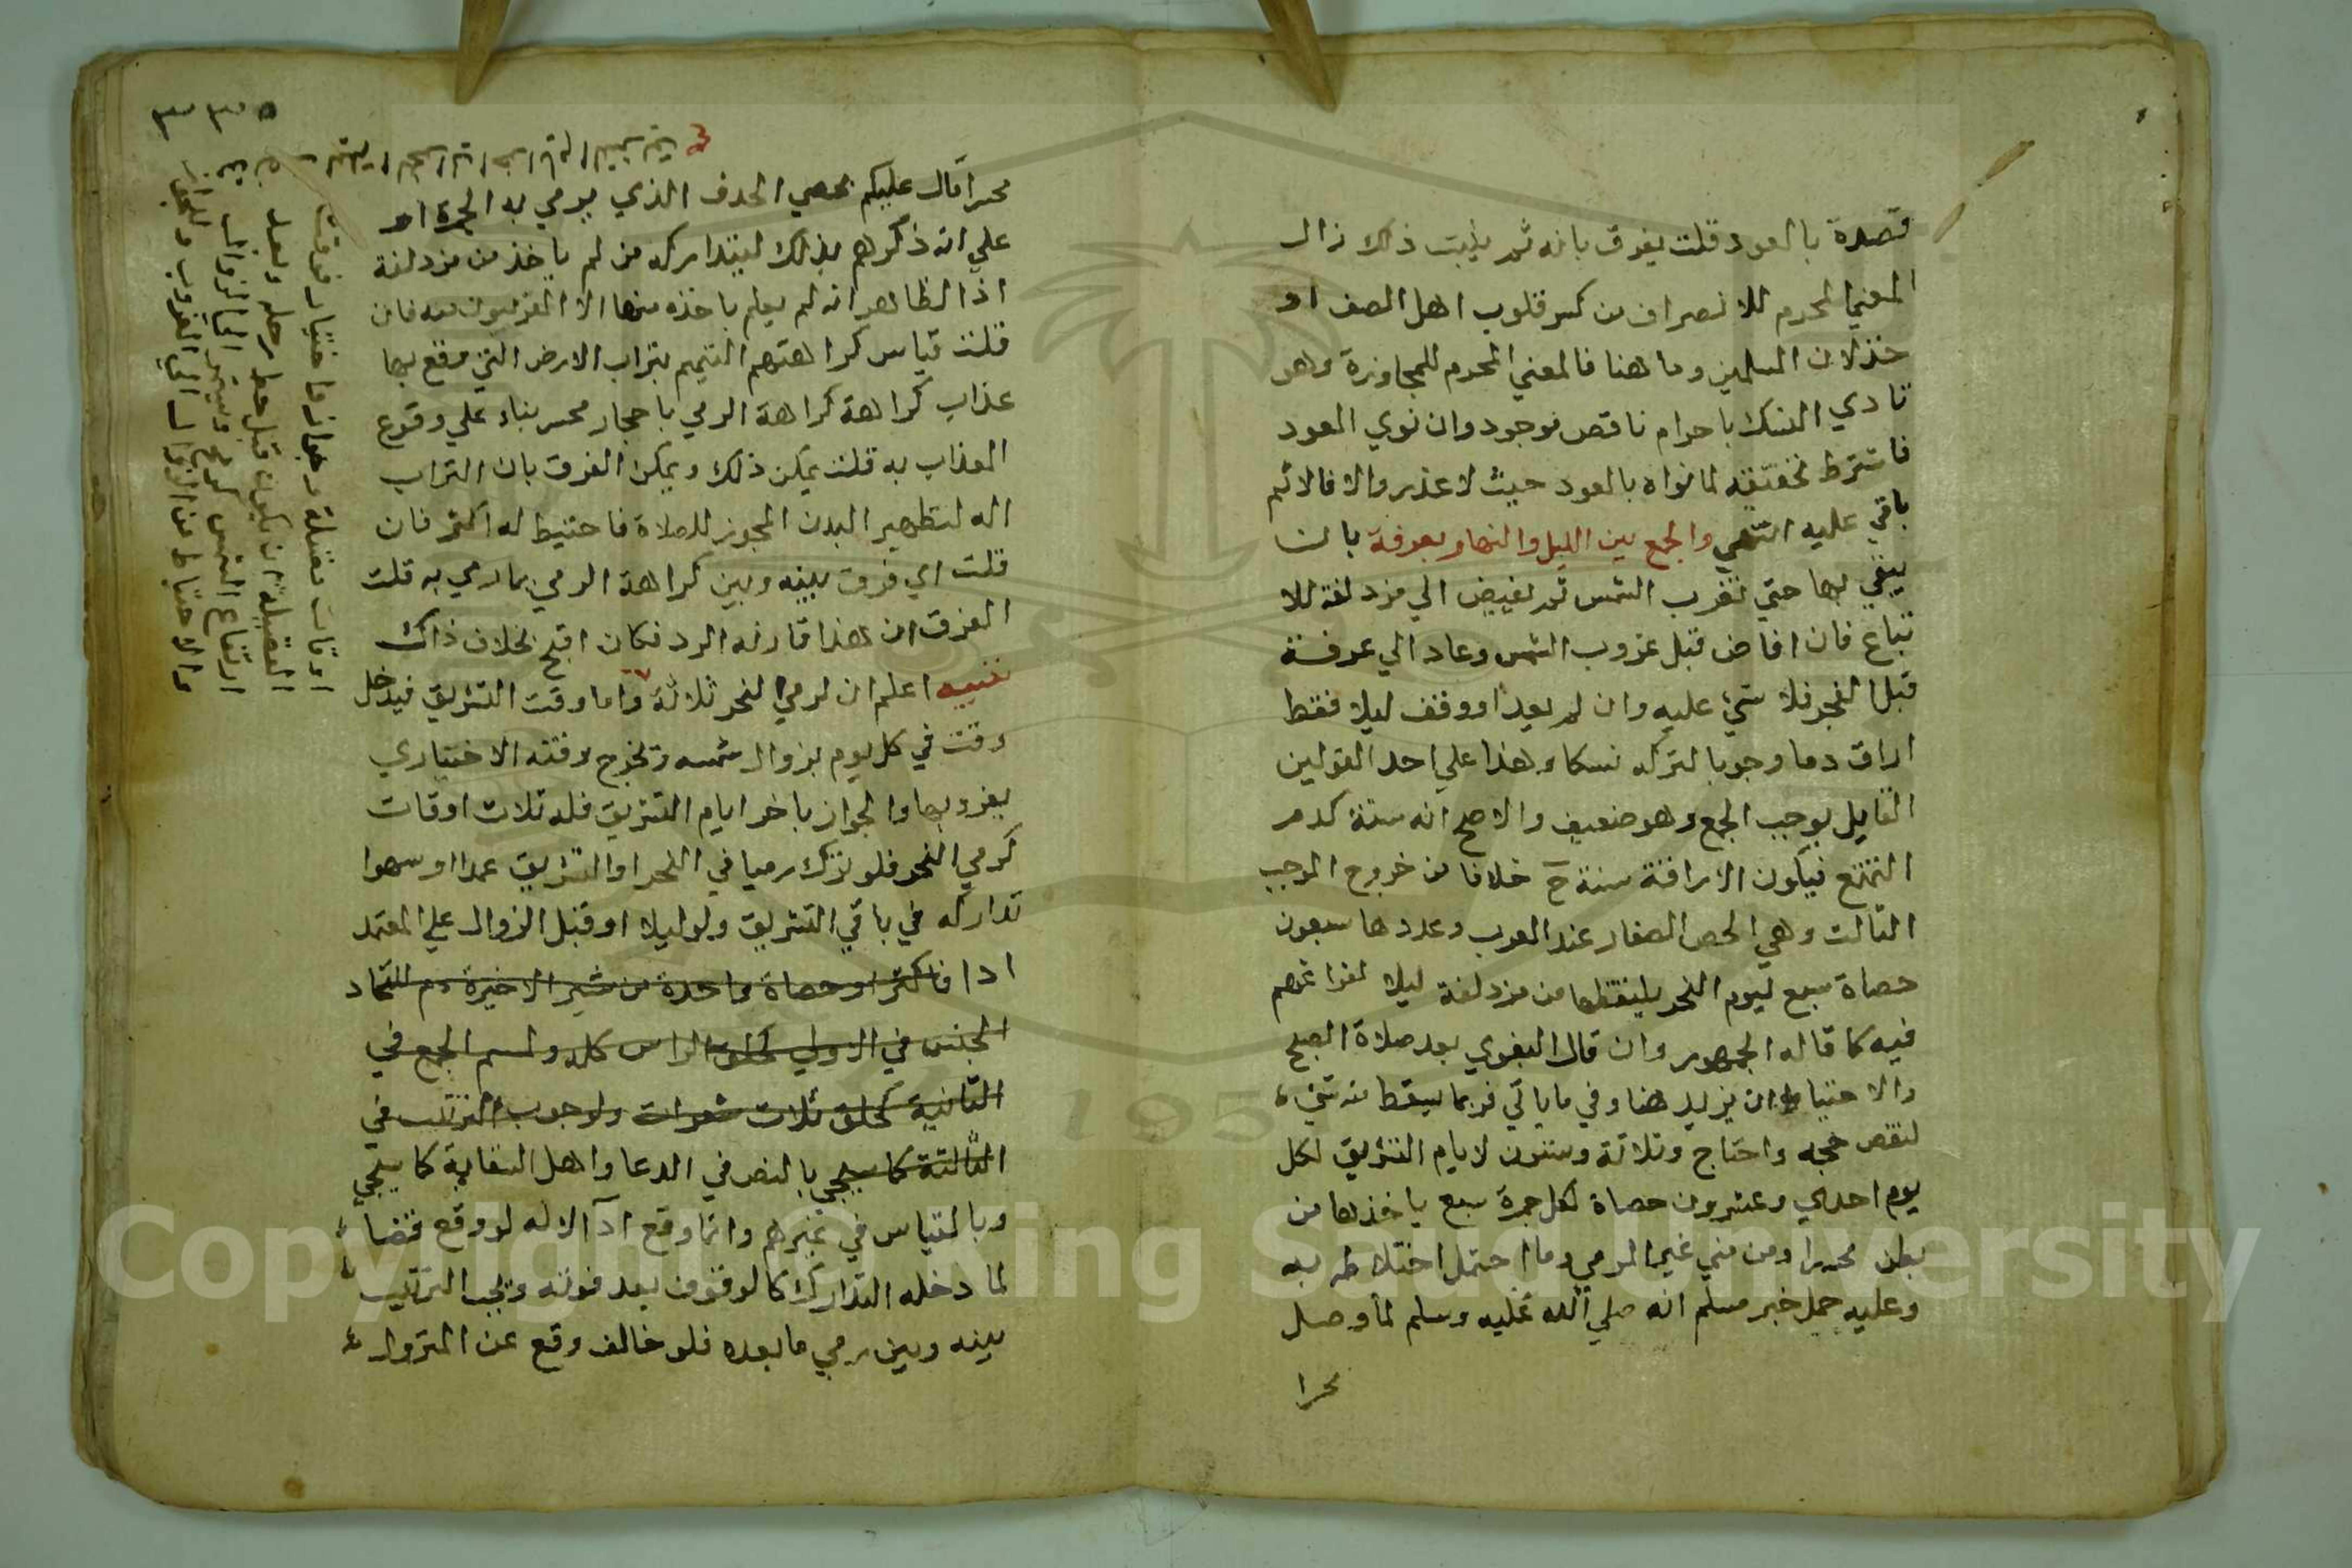 قصده بالعود قلت يفرق بانه ثم بنيت ذلك زال
المعني المحرم للانصراف من كسر قلوب اهل الصف او
خذلان المسلمين وما هنا فالمعني المحرم للمجاوزة وهو
تادي النسك باحرام ناقص موجود وان نوي العود
فاشترط تحقيقه لما نواه بالعود حيث لا عذر والا فالاثم
باقي عليه انتهي والجمع بين الليل والنهار بعرفة بان
يبقي بها حتي تغرب الشمس ثم يفيض الي مزدلفة للا
تباع فان افاض قبل غروب الشمس وعاد الي عرفة
قبل الفجر فلا شيء عليه وان لم يعد او وقف ليلا فقط
اراق دما وجوبا لتركه نسكا وهذا علي احد القولين
القايل بوجب الجمع وهو ضعيف والاصح انه سنة كدم
التمتع فيكون الاراقة سنة ح خلافا من خروج الموجب
الثالث وهي الحصي الصغار عند العرب وعددها سبعون
حصاة سبع ليوم النحر يلتقطها من مزدلفة ليلا لفراغهم
فيه كما قاله الجمهور وان قال البغوي بعد صلاة الصبح
والاحتياط ان يزيد هنا وفي ما ياتي فربما يسقط منه شيء
لنقص حجه واحتاج وثلاثة وستون لايام التشريق لكل
يوم احدي وعشرون حصاة لكل جمرة سبع ياخذها من
بطن محسر او من مني غير المرمي وما احتمل اختلاطه به
وعليه حمل خبر مسلم انه صلي الله عليه وسلم لما وصل
محرا
٣٣٥
محسرا قال عليكم بحصي الخذف الذي يرمي به الجمرة او
علي انه ذكرهم بذلك ليتداركه من لم ياخذ من مزدلفة
اذ الظاهر انه لم يعلم باخذه منها الا القريبون منه فان
قلت قياس كراهتهم التيمم بتراب الارض التي وقع بها
عذاب كراهة كراهة الرمي باحجار محسر بناء علي وقوع
العذاب به قلت يمكن ذلك ويمكن الفرق بان التراب
اله لتطهير البدن المجوز للصلاة فاحتيط له اكثر فان
قلت اي فرق بينه وبين كراهة الرمي بما رمي به قلت
الفرق ان هذا قارنه الرد فكان اقبح بخلاف ذاك
تنبيه اعلم ان لرمي النحر ثلاثة واما وقت التشريق فيدخل
وقت في كل يوم بزوال شمسه وتخرج وقته الاختياري
بغروبها والجواز باخر ايام التشريق فله ثلاث اوقات
كرمي النحر فلو ترك رميا في النحر او التشريق عمدا او سهوا
تداركه في باقي التشريق ولو ليلا او قبل الزوال علي المعتمد
ادا فاكثر او حصاة واحدة من الاخيرة دم للتحاد
الجنس في الاولي كحلق الراس كله ولسم الجمع في
الثانية كحلق ثلاث شعرات ولوجوب الترتيب في
الثالثة كما سيجي بالنص في الدعا واهل السقاية كما سيجي
وبالقياس في غيرهم وانما وقع ادآ لانه لو وقع قضا
لما دخله التدارك كالوقوف بعد فوته ويجب الترتيب
بينه وبين رمي ما بعده فلو خالف وقع عن المتروك
اوقات فضيلة وجواز واختيار فوقت
الفضيلة ان يكون قبل حط رحله وبعد
ارتفاع الشمس كرمح وينتهي الي الزوال
والاختيار من الزوال الي الغروب والجواز
Copyright © King Saud University
195